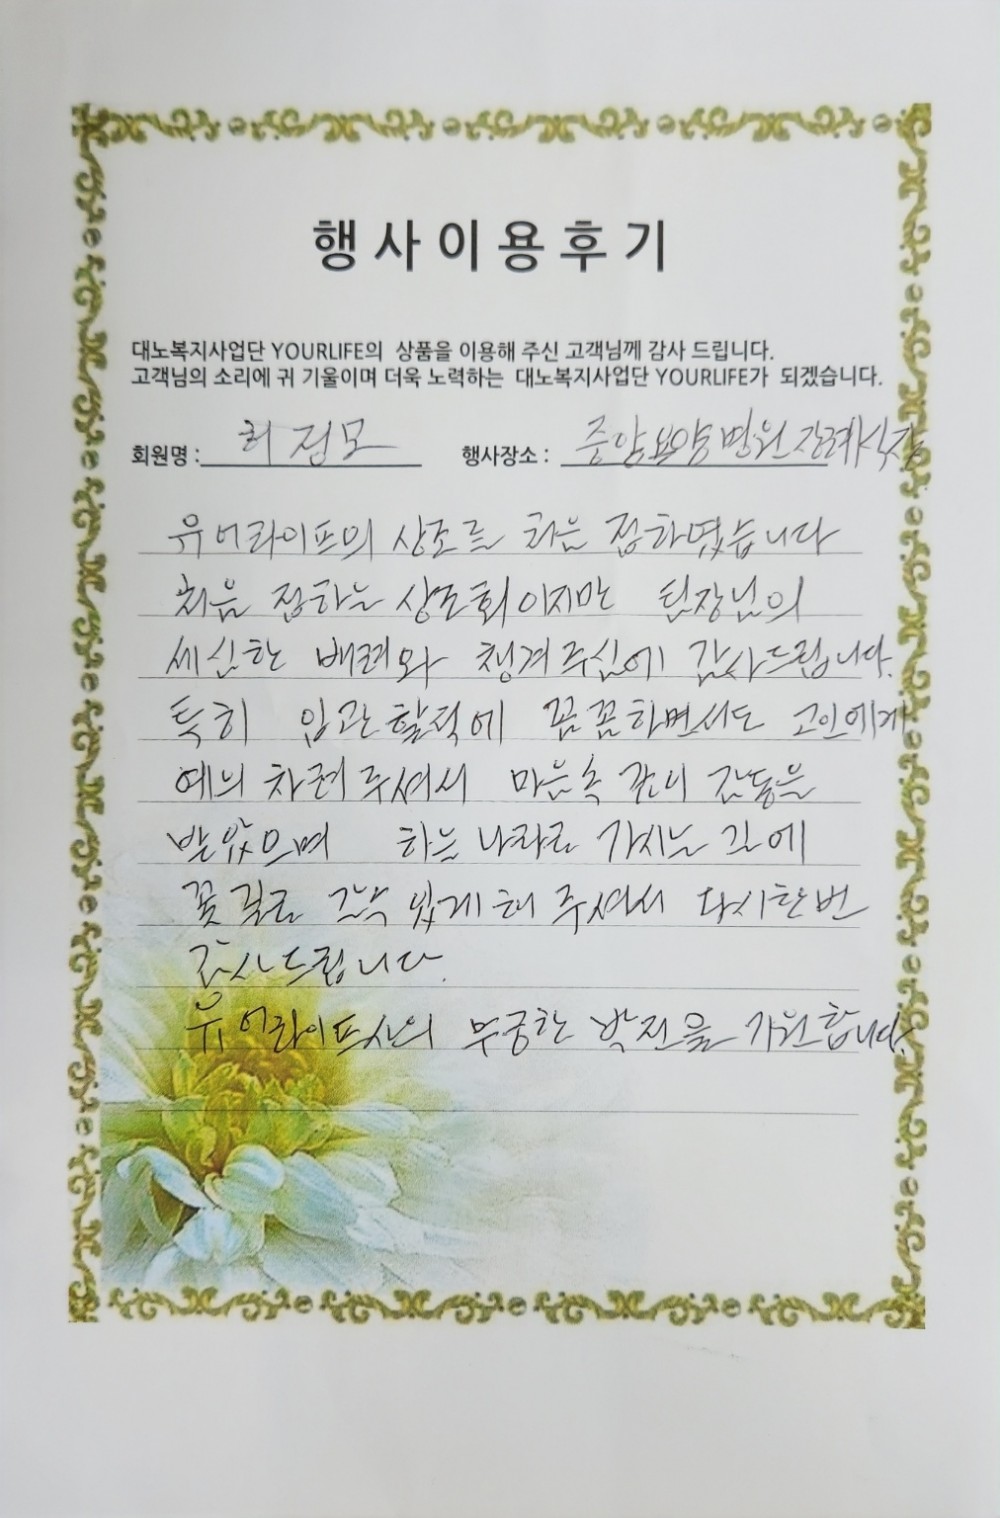 행사이용후기
대노복지사업단 YOURLIFE의 상품을 이용해 주신 고객님께 감사 드립니다.
고객님의 소리에 귀 기울이며 더욱 노력하는 대노복지사업단 YOURLIFE가 되겠습니다.
회원명 : 행사장소 : 중앙요양병원장례식장
유어라이프의 상조를 처음 접하였습니다
처음 접하는 상조회이지만 팀장님의
세심한 배려와 챙겨주심에 감사드립니다.
특히 입관할적에 꼼꼼하면서도 고인에게
예의 차려주셔서 마음속 깊이 감동을
받았으며 하늘나라로 가시는 길에
꽃길로 갈수 있게 해 주셔서 다시한번
감사드립니다.
유어라이프사의 무궁한 발전을 기원합니다.